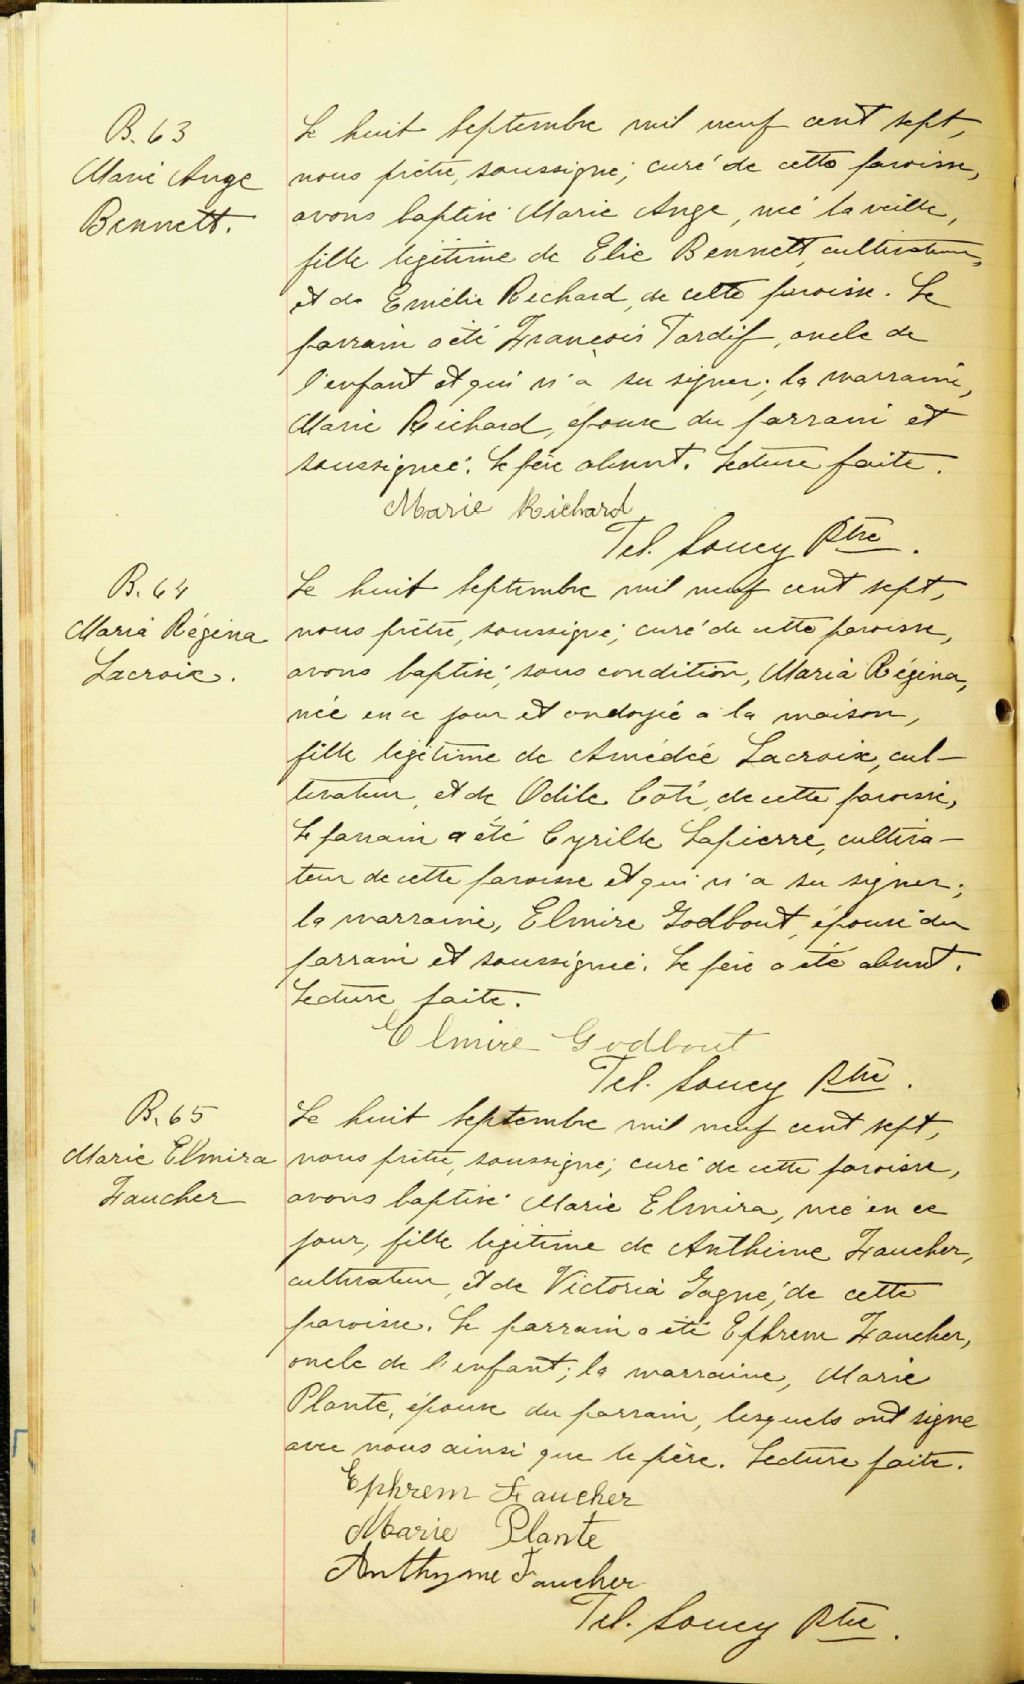 B. 63
Marie Ange
Bennett.
Le huit Septembre mil neuf cent sept,
nous prêtre, soussigné, curé de cette paroisse,
avons baptisé Marie Ange, née la veille,
fille légitime de Elie Bennett, cultivateur,
et de Emélie Richard, de cette paroisse. Le
parrain a été François Tardif, oncle de
l'enfant et qui n'a su signer; la marraine,
Marie Richard, épouse du parrain et
soussignée. Le père absent. Lecture faite.
Marie Richard
Tel. Soucy Ptre.
B. 64
Maria Régina
Lacroix.
Le huit Septembre mil neuf cent sept,
nous prêtre, soussigné, curé de cette paroisse,
avons baptisé, sous condition, Maria Régina,
née en ce jour et ondoyée à la maison,
fille légitime de Amédée Lacroix, cul-
tivateur, et de Odile Côté, de cette paroisse,
Le parrain a été Cyrille Lapierre, cultiva-
teur de cette paroisse et qui n'a su signer;
la marraine, Elmire Godbout, épouse du
parrain et soussignée. Le père a été absent.
Lecture faite.
Elmire Godbout
Tel. Soucy Ptre.
B. 65
Marie Elmira
Faucher
Le huit Septembre mil neuf cent sept,
nous prêtre, soussigné, curé de cette paroisse,
avons baptisé Marie Elmira, née en ce
jour, fille légitime de Anthime Faucher,
cultivateur, et de Victoria Gagné, de cette
paroisse. Le parrain a été Ephrem Faucher,
oncle de l'enfant; la marraine, Marie
Plante, épouse du parrain, lesquels ont signé
avec nous ainsi que le père. Lecture faite.
Ephrem Faucher
Marie Plante
Anthyme Faucher
Tel. Soucy Ptre.